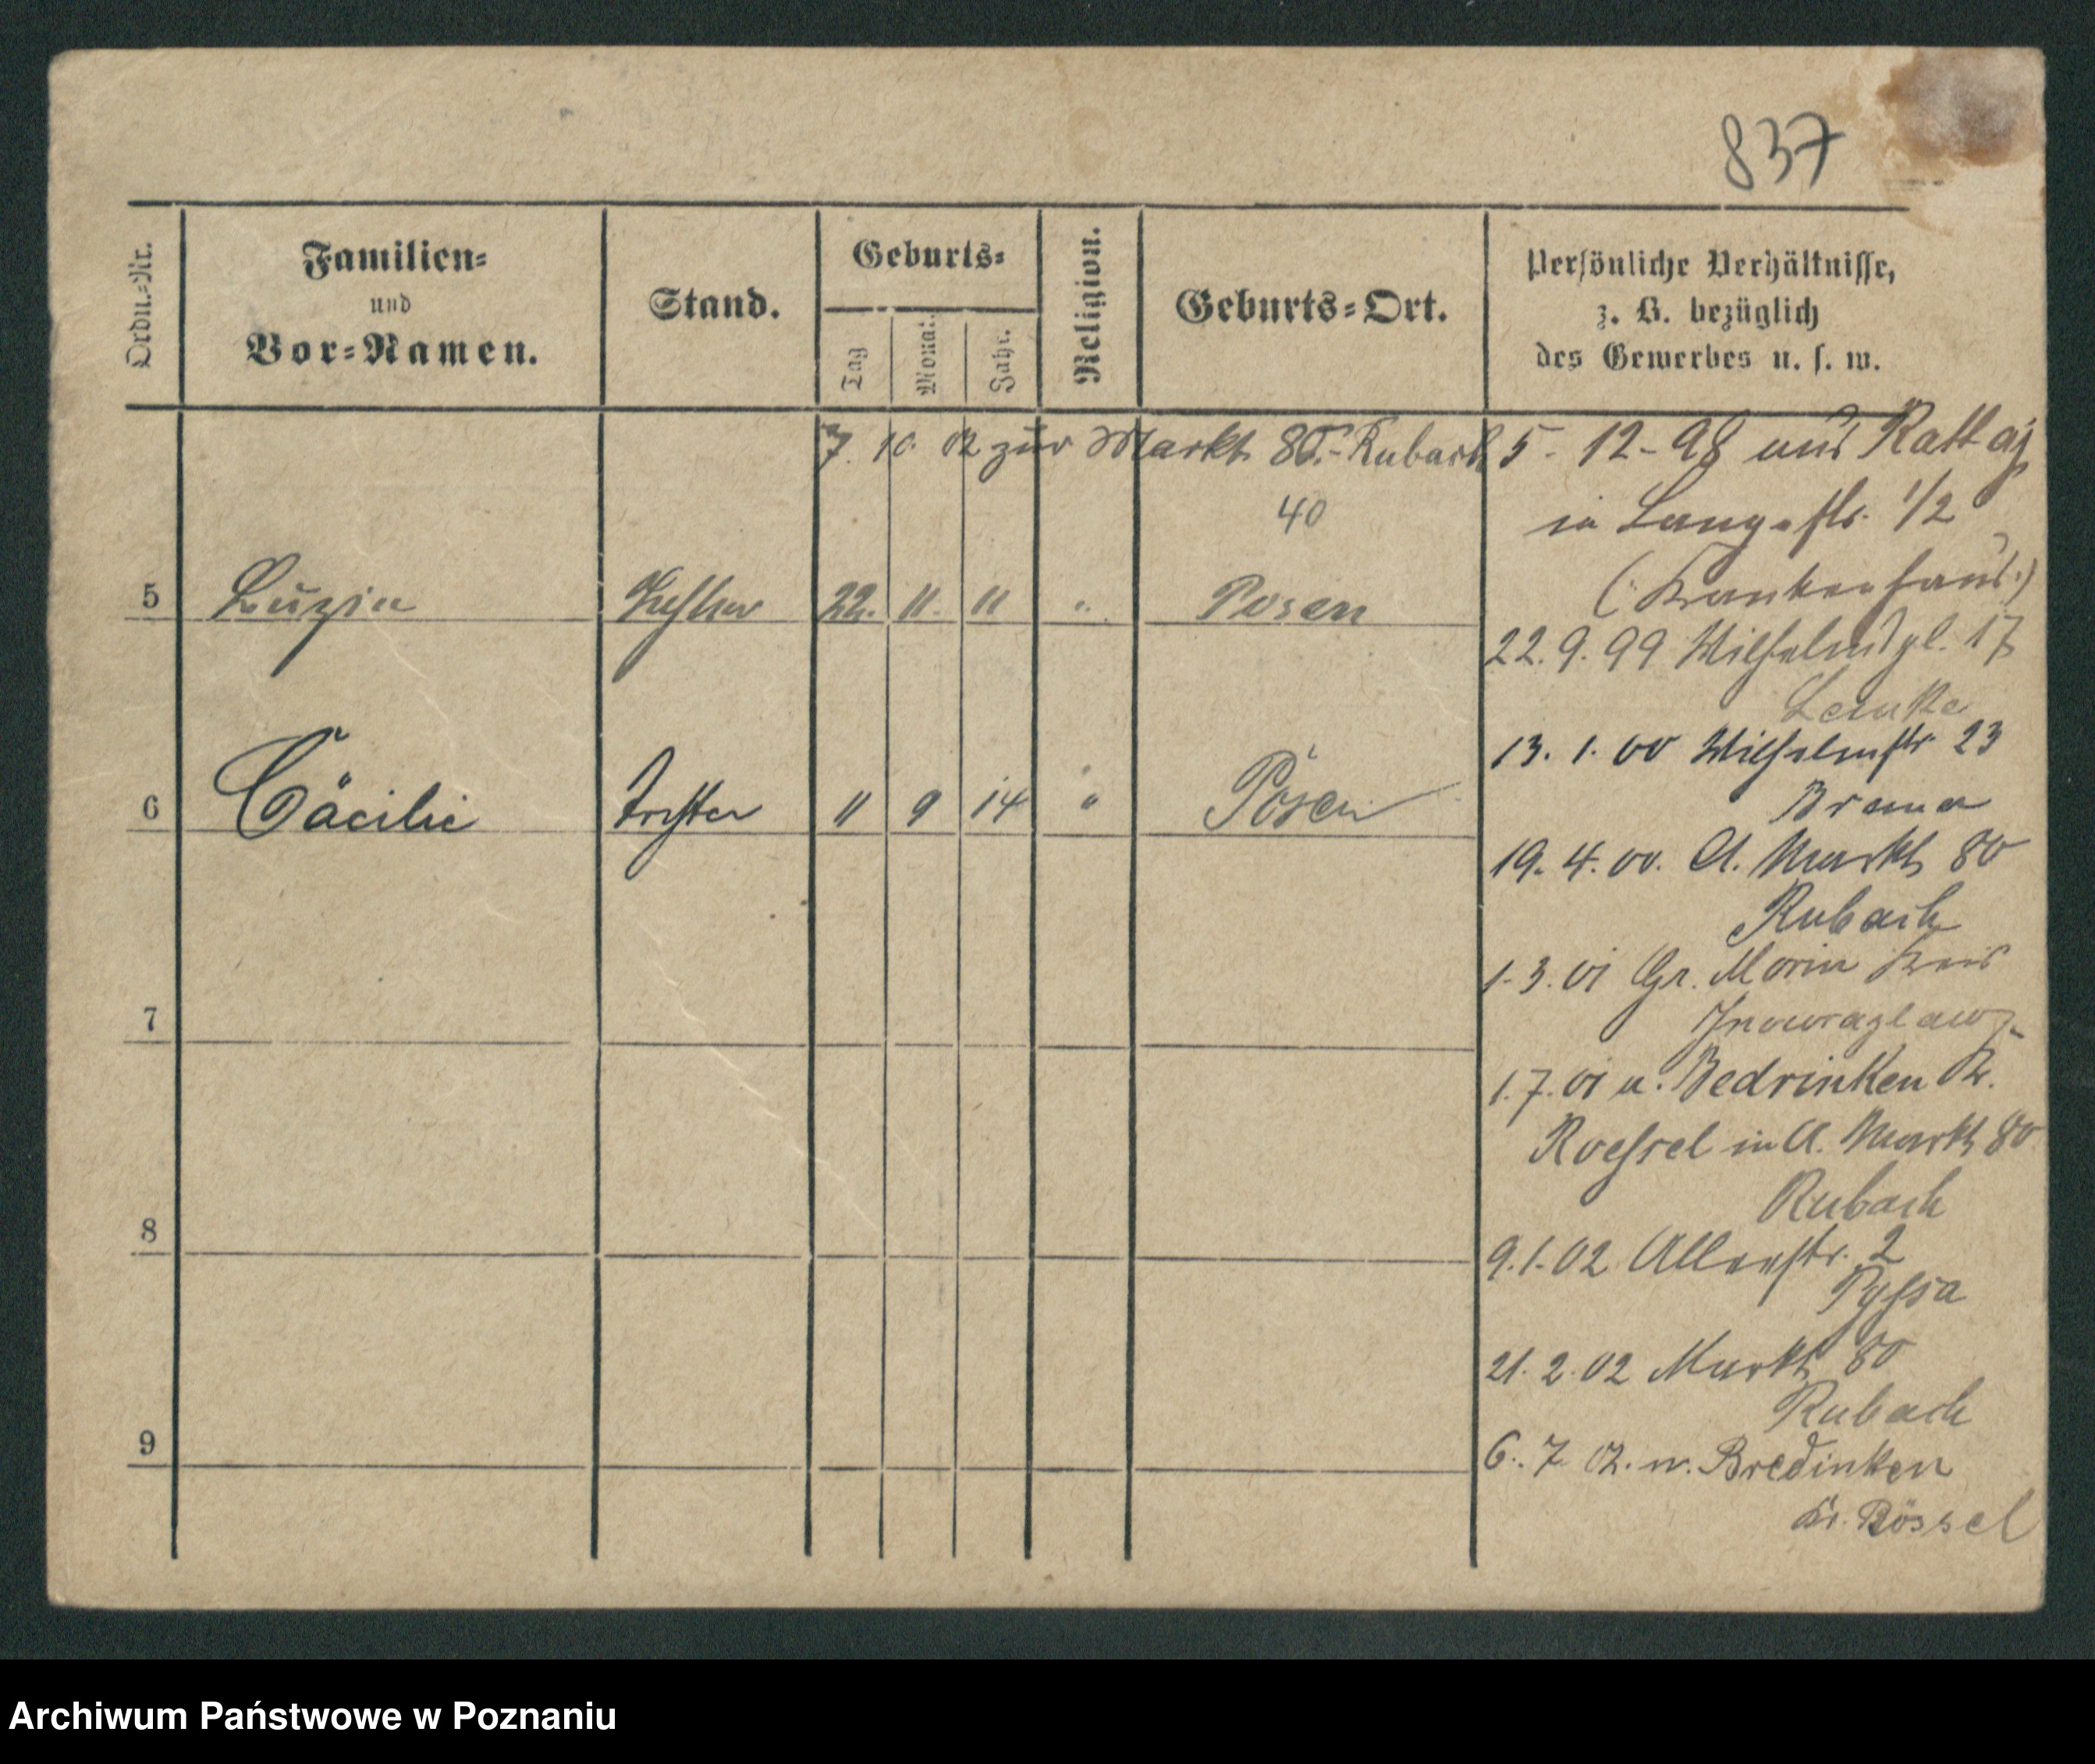 837
Ordn.-Nr.
Familien-
und
Vor-Namen.
Stand.
Geburts-
Tag
Monat.
Jahr.
Religion.
Geburts-Ort.
Persönliche Verhältnisse,
z. B. bezüglich
des Gewerbes u. s. w.
7. 10. 02 zur Markt 80.- Rubach
40
5 Luzia Tochter 22. 11. 11 " Posen
6 Cäcilie Tochter 11 9 14 " Posen
7
8
9
5-12-98 aus Rattaj
in Langestr. 1/2
(: Krankenhaus :)
22. 9. 99 Wilhelmspl. 17
Lemke
13. 1. 00 Wilhelmstr. 23
19. 4. 00. A. Markt 80
Rubach
1. 3. 01 Gr. Morin Kreis
Inowrazlaw
1. 7. 01 a. Bedrinken Kr.
Roessel in A. Markt 80
Rubach
9. 1. 02 2
21. 2. 02 Markt 80
Rubach
6. 7 02. n. Bredinken
Kr. Rössel
Archiwum Państwowe w Poznaniu